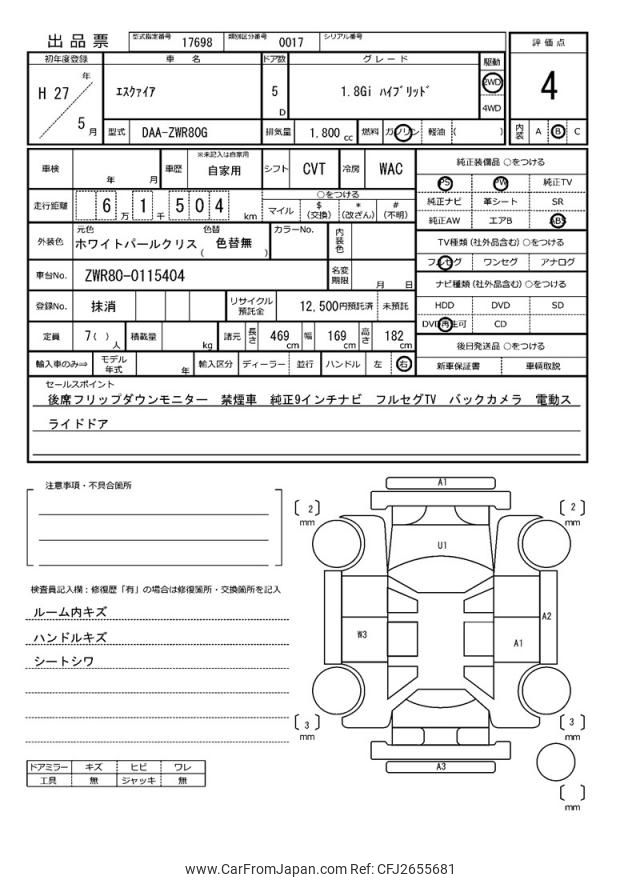 出品票 型式指定番号 17698 類別区分番号 0017 シリアル番号
初年度登録 車 名 ドア数 グレード 駆動 評価点
H 27 年 5 月 エスクァイア 5 D 1.8Gi ハイブリッド 2WD 4WD 4
型式 DAA-ZWR80G 排気量 1,800 cc 燃料 ガソリン 軽油 ( ) 内装 A B C
車検 年 月 車歴 ※未記入は自家用 自家用 シフト CVT 冷房 WAC
純正装備品 ○をつける
PS PW 純正TV
純正ナビ 革シート SR
純正AW エアB ABS
走行距離 6 万 1 千 5 0 4 km
○をつける
マイル $ (交換) * (改ざん) # (不明)
外装色 元色 ホワイトパールクリス 色替 ( 色替無 ) カラーNo. 内装色
TV種類 (社外品含む) ○をつける
フルセグ ワンセグ アナログ
車台No. ZWR80-0115404 名変期限 月 日
ナビ種類 (社外品含む) ○をつける
HDD DVD SD
DVD再生可 CD
登録No. 抹消 リサイクル預託金 12,500円預託済 未預託
定員 7 ( ) 人 積載量 kg 諸元 長さ 469 cm 幅 169 cm 高さ 182 cm
後日発送品 ○をつける
新車保証書 車輌取説
輸入車のみ⇒ モデル年式 年 輸入区分 ディーラー 並行 ハンドル 左 右
セールスポイント
後席フリップダウンモニター 禁煙車 純正9インチナビ フルセグTV バックカメラ 電動ス
ライドドア
注意事項・不具合箇所
検査員記入欄：修復歴「有」の場合は修復箇所・交換箇所を記入
ルーム内キズ
ハンドルキズ
シートシワ
ドアミラー キズ ヒビ ワレ
工具 無 ジャッキ 無
A1
2 mm
2 mm
U1
A2
W3
A1
3 mm
3 mm
A3
mm
www.CarFromJapan.com Ref: CFJ2655681